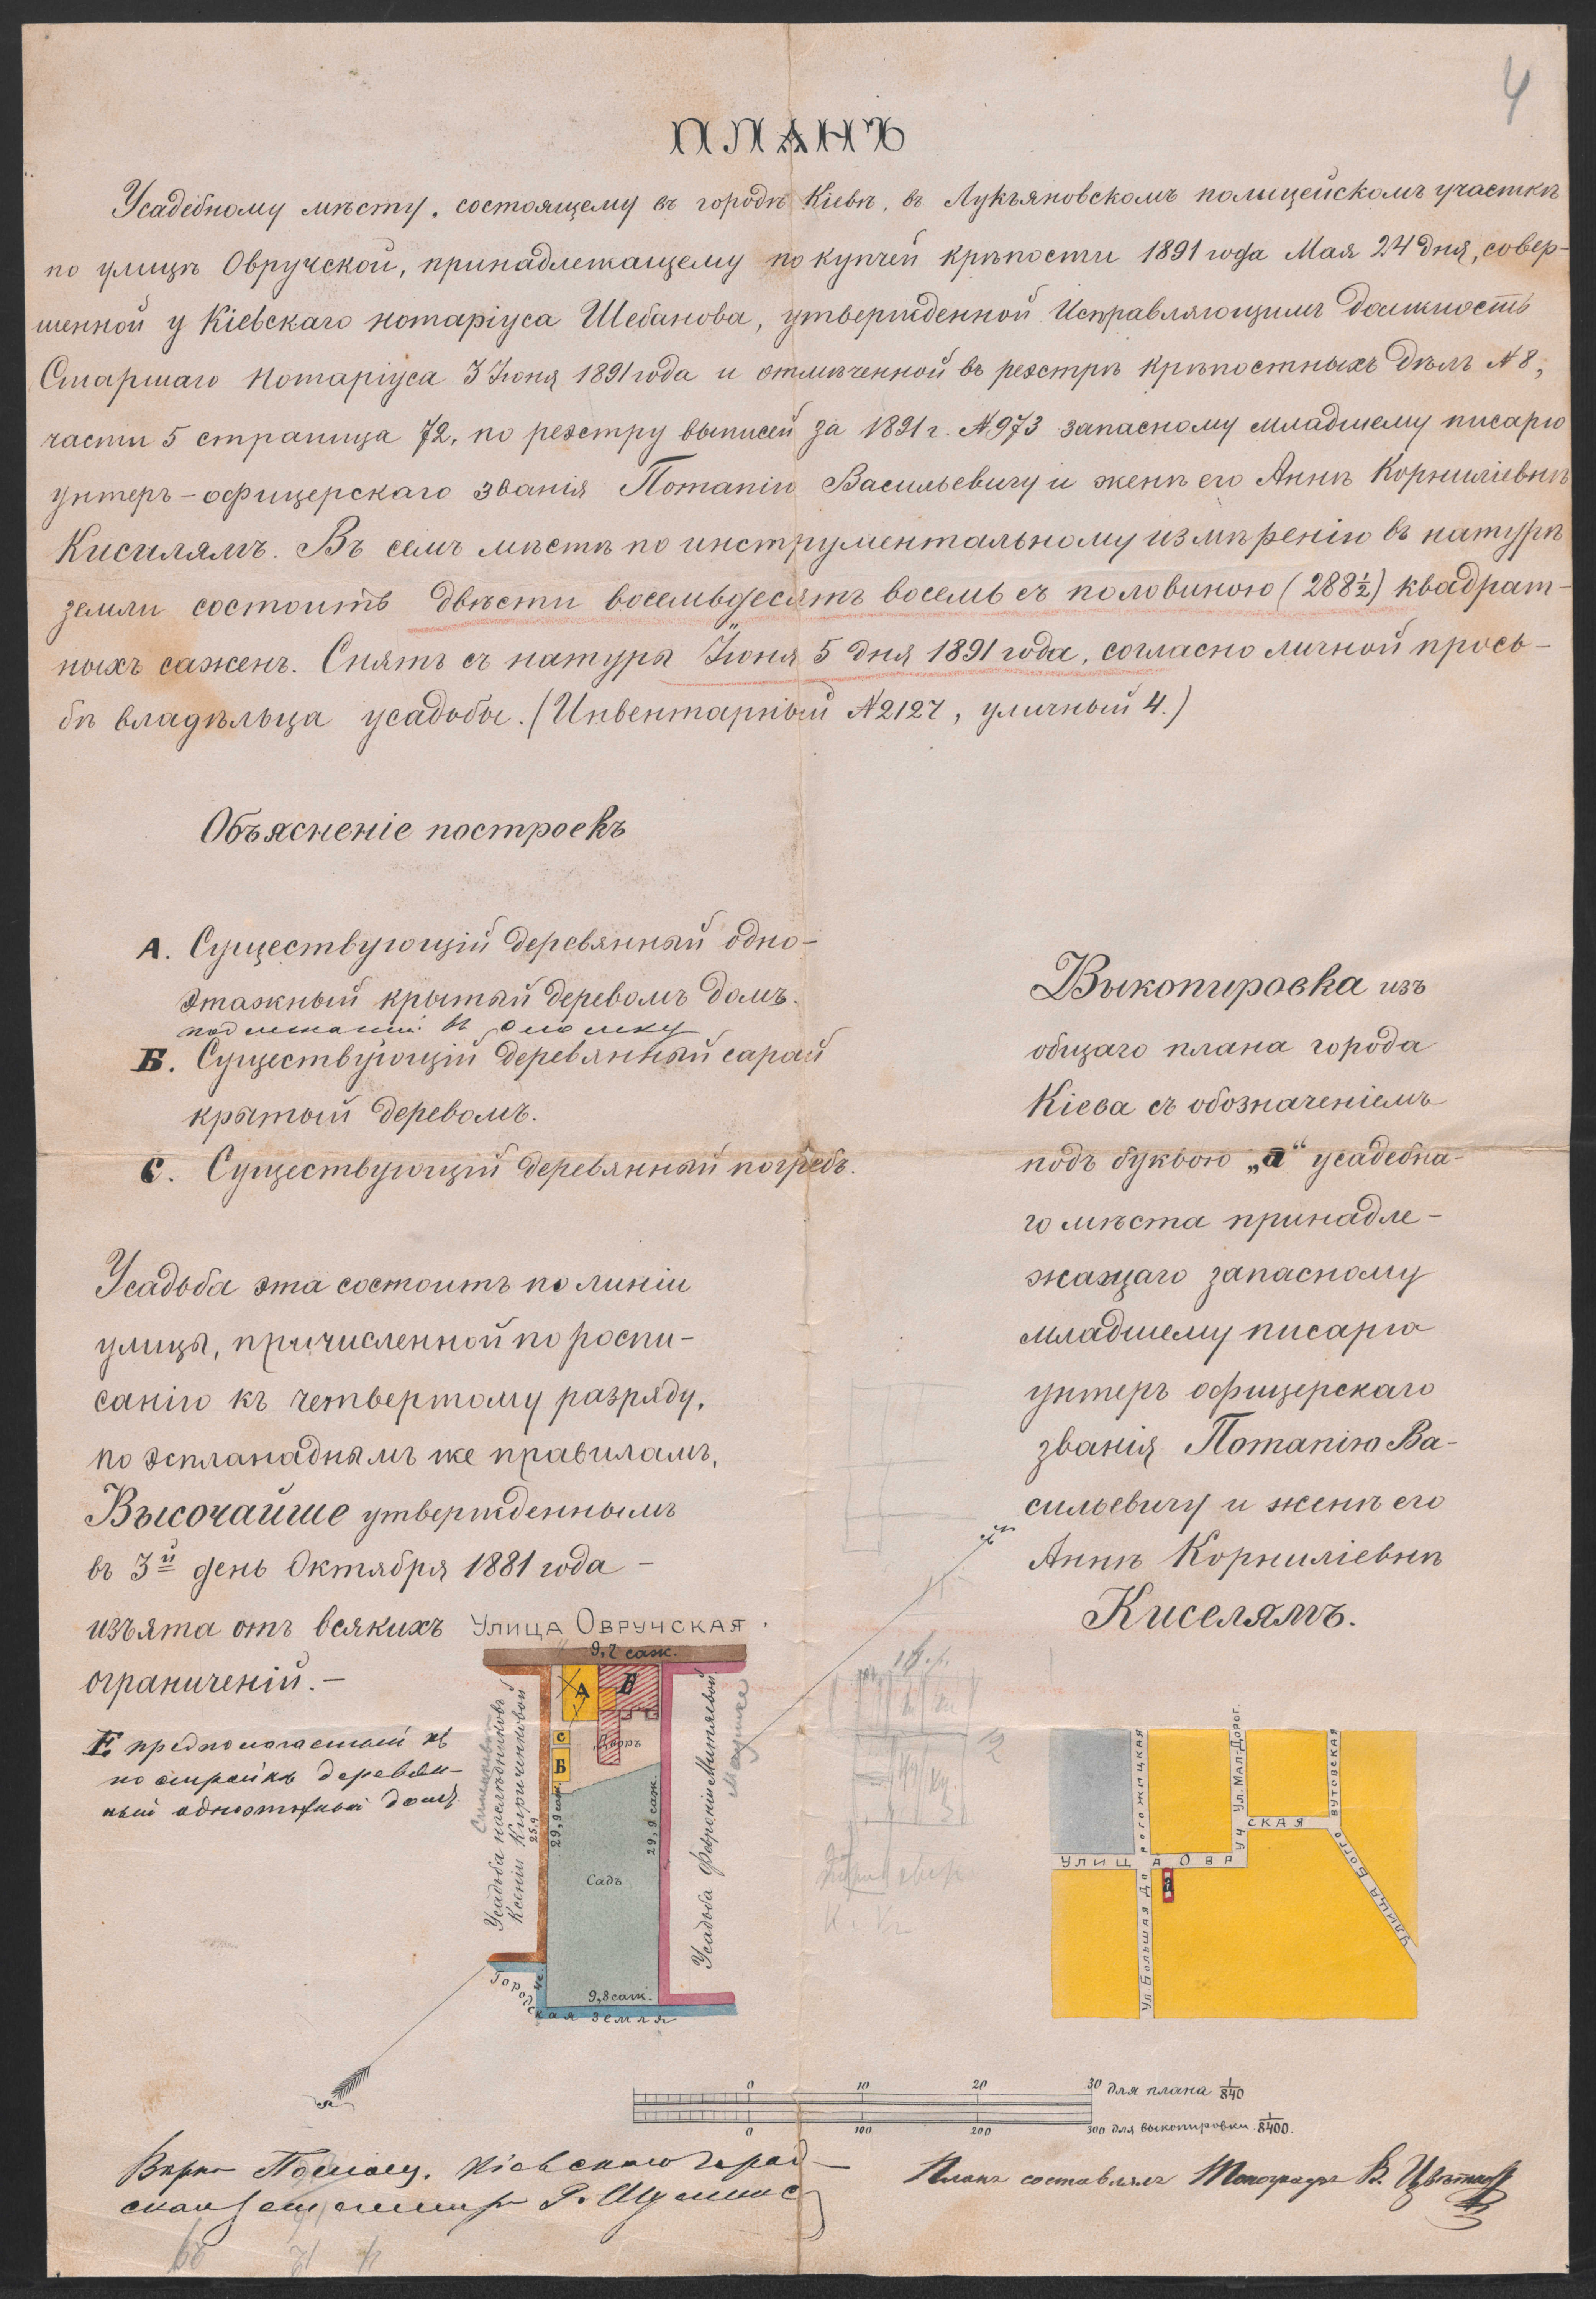 4
ПЛАНЪ
Усадебному мѣсту, состоящему въ городѣ Кіевѣ, въ Лукъяновскомъ полицейскомъ участкѣ
по улицѣ Овручской, принадлежащему по купчей крѣпости 1891 года Мая 24 дня, совер-
шенной у Кіевскаго нотаріуса Шебанова, утвержденной Исправляющимъ Должность
Старшаго Нотаріуса 3 Іюня 1891 года и отмѣченной въ реэстрѣ крѣпостныхъ дѣлъ №8,
части 5 страница 72, по реэстру выписей за 1891 г. №973 запасному младшему писарю
унтеръ-офицерскаго званія Потапію Васильевичу и женѣ его Аннѣ Корниліевнѣ
Кисилямъ. Въ семъ мѣстѣ по инструментальному измѣренію въ натурѣ
земли состоитъ двѣсти восемьдесятъ восемь съ половиною (288½) квадрат-
ныхъ саженъ. Снятъ съ натуры Іюня 5 дня 1891 года, согласно личной прось-
бѣ владѣльца усадьбы. (Инвентарный №2127, уличный 4.)
Объясненіе построекъ
А. Существующій деревянный одно-
этажный крытый деревомъ домъ.
подлежащій въ сломку
Б. Существующій деревянный сарай
крытый деревомъ.
С. Существующій деревянный погребъ.
Усадьба эта состоитъ по линіи
улицы, причисленной по роспи-
санію къ четвертому разряду,
по эспланаднымъ же правиламъ,
Высочайше утвержденнымъ
въ 3й день Октября 1881 года -
изъята отъ всякихъ
ограниченій.-
Е предпологаемый къ
постройкѣ деревян-
ный одноэтажный домъ.
Выкопировка изъ
общаго плана города
Кіева съ обозначеніемъ
подъ буквою „а“ усадебна-
го мѣста принадле-
жащаго запасному
младшему писарю
унтеръ офицерскаго
званія Потапію Ва-
сильевичу и женѣ его
Аннѣ Корниліевнѣ
Киселямъ.
Улица Овручская
9,2 саж.
А
Е
С
Дворъ
Б
29,9 саж.
29,9 саж.
25,9
Садъ
9,8 саж.
Усадьба наслѣдниковъ
Ксеніи Киричинковой
Усадьба Февроніи Митяевой
Городская земля
Улица Овручская
Ул. Большая Дорогожицкая
Ул. Мал. Дорог.
Улица Боггоутовская
а
0 10 20 30 для плана 1/840
0 100 200 300 для выкопировки 1/8400.
Вѣрно Кіевскаго Город-
Планъ составлялъ Топографъ В. Цвѣтковъ